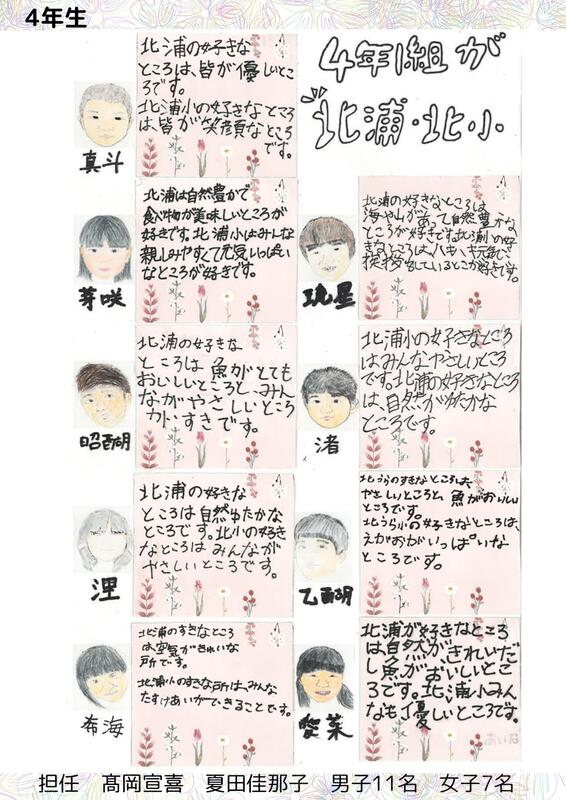 4年生
4年1組が
北浦・北小
北浦の好きな
ところは、皆が優しいとこ
ろです。
北浦小の好きなところ
は、皆が笑顔なところ
です。
真斗
北浦は自然豊かで
食べ物が美味しいところが
好きです。北浦小はみんな
親しみやすくて元気いっぱい
なところが好きです。
芽咲
北浦の好きなところは
海や山があって自然豊かな
ところが好きです。北浦小の好
きなところは、ハキハキ元気で
挨拶をしているところが好きです。
琉星
北浦の好きな
ところは魚がとても
おいしいところと、みん
ながやさしいところ
がすきです。
北浦小の好きなところ
はみんなやさしいところ
です。北浦の好きなところ
は自然がゆたかな
ところです。
渚
北浦の好きな
ところは自然ゆたかな
ところです。北小の好き
なところはみんなが
やさしいところです。
浬
北うらのすきなところは、
やさしいところと、魚がおいしい
ところです。
北うら小の好きなところは、
えがおがいっぱいな
ところです。
北浦のすきなところ
は、空気がきれいな
所です。
北浦小のすきな所は、みんな
たすけあいができることです。
希海
北浦が好きなところ
は自然が、きれいだ
し魚がおいしいとこ
ろです。北浦小みん
なも優しいところです。
あいな
愛菜
担任 髙岡宣喜 夏田佳那子 男子11名 女子7名